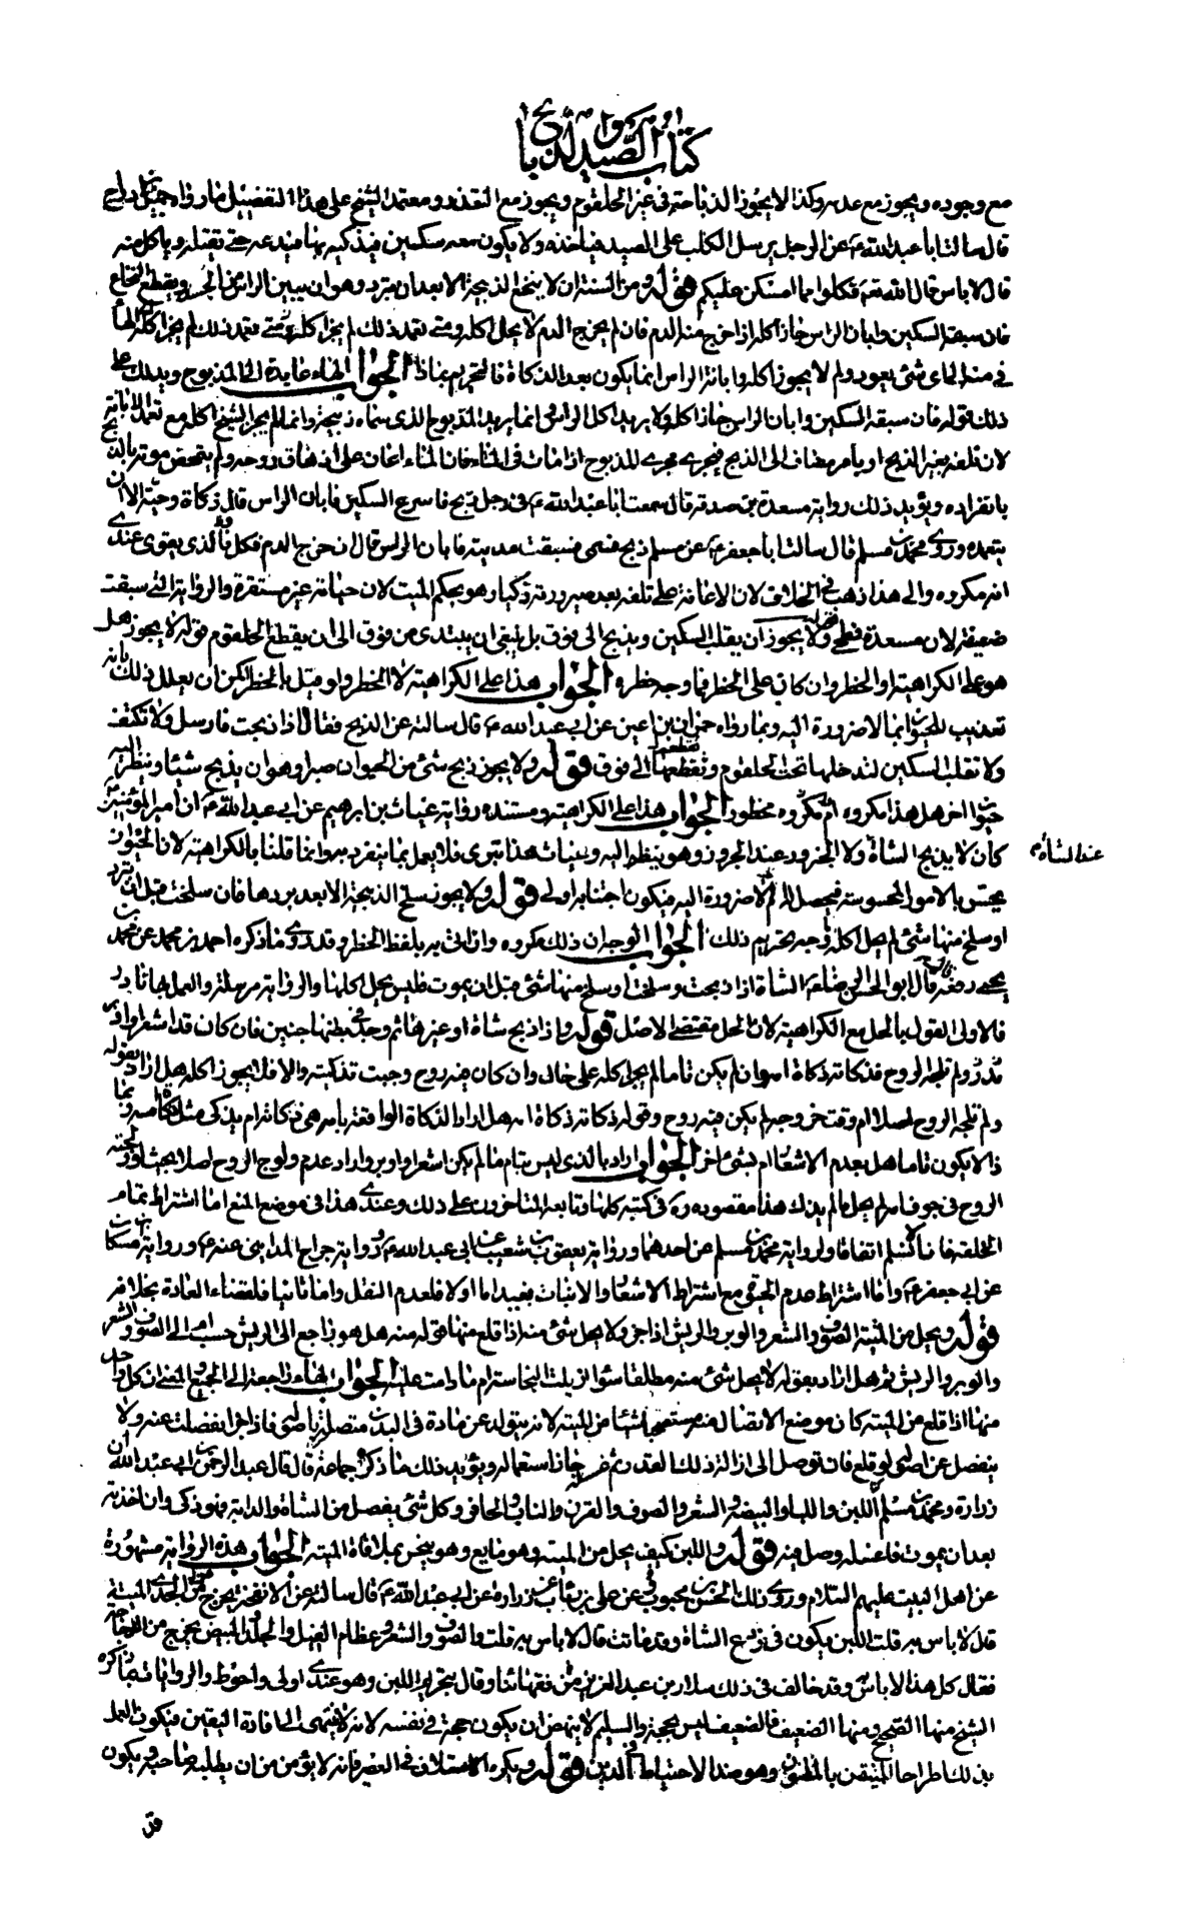 كتاب الصيد والذبايح
مع وجوده ويجوز مع عدمه وكذا لا يجوز الذباحة في غير الحلقوم ويجوز مع التعذر ومعتمد الشيخ على هذا التفصيل ما رواه جميل بن دراج
قال سالت ابا عبد الله ع عن الرجل يرسل الكلب على الصيد فياخذه ولا يكون معه سكين فيذكيه بها فيدعه حتى يقتله وياكل منه
قال لا باس قال الله تعه فكلوا مما امسكن عليكم قوله ومن السنة ان لا ينخع الذبيحة الا بعد ان تبرد وهو ان يبين الراس من الجسد ويقطع النخاع
فان سبقته السكين وابان الراس جاز اكله اذا خرج منه الدم فان لم يخرج الدم لا يحل اكله ومتى تعمد ذلك لم يجز اكله الهاء
في منه الى اي شئ يعود ولم لا يجوز اكله وابانة الراس انما يكون بعد الذكاة فالتحريم بماذا الجواب الهاء عايدة الى المذبوح ويدلك على
ذلك قوله فان سبقته السكين وابان الراس جاز اكله ولا يريد اكل الراس انما يريد المذبوح الذي سماه ذبيحة وانما لم يجز الشيخ اكله مع تعمد الابانة
لان تلفه بغير الذبح او بامر مضاف الى الذبح فيجري مجرى المذبوح اذا مات في الماء فان الماء اعان على ازهاق روحه ولم يتمحض موته بالذبح
بانفراده ويؤيد ذلك رواية مسعدة بن صدقة قال سمعت ابا عبد الله ع في رجل ذبح فاسرع السكين فابان الراس قال ذكاة وحية الا ان
يتعمده وروى محمد بن مسلم قال سالت ابا جعفر ع عن مسلم ذبح فسمى فسبقت مديته فابان الراس قال ان خرج الدم فكل والذي يقوى عندي
انه مكروه والى هذا ذهب في الخلاف لان الاعانة على تلفه بعد صيرورته ذكيا وهو بحكم الميت لان حياته غير مستقرة والرواية التي سبقت
ضعيفة لان مسعدة فطحي قوله ولا يجوز ان يقلب السكين ويذبح الى فوق بل ينبغي ان يبتدى من فوق الى ان يقطع الحلقوم قوله لا يجوز هل
هو على الكراهية او الحظر وان كان على الحظر فما وجه حظره الجواب هذا على الكراهية لا الحظر ولو قيل بالحظر لكن ان يعلل ذلك بانه
تعذيب للحيوان بما لا ضرورة اليه وبما رواه حمران بن اعين عن ابي عبد الله ع قال سالته عن الذبح فقال اذا ذبحت فارسل ولا تكتف
ولا تقلب السكين لتدخلها تحت الحلقوم وتقطعه الى فوق قوله ولا يجوز ذبح شئ من الحيوان صبرا وهو ان يذبح شيئا وينظر اليه
حيوان اخر هل هذا مكروه ام مكروه محظور الجواب هذا على الكراهية ومستنده رواية غياث بن ابرهيم عن ابي عبد الله ع ان امير المؤمنين ع
كان لا يذبح الشاة ولا الجزور عند الجزور وهو ينظر اليه وغياث هذا بتري فلا يعمل بما ينفرد به وانما قلنا بالكراهية لان الحيوان
عند الشاة م
يحس بالامور المحسوسة فيحصل له الم لا ضرورة اليه فيكون اجتنابه اولى قوله ولا يجوز سلخ الذبيحة الا بعد بردها فان سلخت قبل ان تبرد
او سلخ منها شئ لم يحل اكله ما وجه تحريم ذلك الجواب الوجه ان ذلك مكروه وان اتى به بلفظ الحظر وقد روى ما ذكره احمد بن محمد عن محمد بن
يحيى رفعه قال قال ابو الحسن الرضا ع الشاة اذا ذبحت وسلخت او سلخ منها شئ قبل ان يموت فليس يحل اكلها والرواية مرسلة والعمل بها نادر
فالاولى القول بالحل مع الكراهية لان الحل مقتضى الاصل قوله واذا ذبح شاة او غيرها ثم وجد في بطنها جنين فان كان قد اشعر او اوبر
ولم تلجه الروح فذكاته ذكاة امه وان لم يكن تاما لم يجز اكله على حال وان كان فيه روح وجبت تذكيته والا فلا يجوز اكله هل اراد بقوله
ولم تلجه الروح اصلا ام وقت خروجه لم يكن فيه روح وقوله ذكاته ذكاة امه هل اراد الذكاة الواقعة بامه هي ذكاته ام يذكى مثل ذكاة امه وبما
ذا لا يكون تاما هل بعدم الاشعار ام بشئ اخر الجواب اراد بالذي ليس بتام ما لم يكن اشعر او اوبر واراد عدم ولوج الروح اصلا بحيث لو ولجته
الروح في جوف امه لم يحل ما لم يذك هذا مقصوده ره في كتبه كلها وتابعه المتاخرون على ذلك وعندي هذا في موضع المنع اما اشتراط تمام
الخلقة فانا نسلم اتفاقا ولرواية محمد بن مسلم عن احدهما ورواية يعقوب بن شعيب عن ابي عبد الله ع ورواية جراح المدايني عنه ع ورواية بن مسكان
عن ابي جعفر ع واما اشتراط عدم الحيوة مع اشتراط الاشعار والانبات فبعيد اما اولا فلعدم النقل واما ثانيا فلقضاء العادة بخلافه
قوله ويحل من الميتة الصوف والشعر والوبر والريش اذا جز ولا يحل شئ منه اذا قلع منها قوله منه هل هو راجع الى الريش حسب ام الى الصوف والشعر
والوبر والريش ثم هل اراد بقوله لا يحل شئ منه مطلقا سواء ازيلت النجاسة ام ما دامت عليه الجواب الهاء راجعة الى الجميع والمعنى ان كل واحد
منها اذا قلع من الميتة كان موضع الاتصال منه مستصحبا شيئا من الميتة لانه يتولد عن مادة في البدن متصلة فاذا جز انفصلت عنه ولا
ينفصل عن اصله لو قلع فان توصل الى ازالة ذلك القدر ثم غسل جاز استعماله ويؤيد ذلك ما ذكره جماعة قال قال عبد الرحمن بن ابي عبد الله ان
زرارة ومحمد بن مسلم اللبن واللباء والبيضة والشعر والصوف والقرن والناب والحافر وكل شئ يفصل من الشاة والدابة فهو ذكي وان اخذته
بعد ان يموت فاغسله وصل فيه قوله واللبن كيف يحل من الميتة وهو مايع وهو ينجس بملاقاة الميتة الجواب هذه الرواية مشهورة
عن اهل البيت عليهم السلام وروى ذلك الحسن بن محبوب عن علي بن رئاب عن زرارة عن ابي عبد الله ع قال سالته عن الانفحة يخرج من الجدي الميت
قال لا باس به قلت اللبن يكون في ضرع الشاة وقد ماتت قال لا باس به قلت والصوف والشعر وعظام الفيل والجلد والبيض يخرج من الدجاجة
فقال كل هذا لا باس به وقد خالف في ذلك سلار بن عبد العزيز من فقهائنا وقال بتحريم اللبن وهو عندي اولى واحوط والروايات بما ذكره
الشيخ منها الصحيح ومنها الضعيف فالضعيف ليس بحجة والسليم لا ينهض ان يكون حجة في نفسه لانه لا ينتهى الى افادة اليقين فيكون العمل
بذلك اطراحا للمتيقن بالمظنون وهو ضد الاحتياط في الدين قوله ويكره الاستلاف في العصير فانه لا يؤمن من ان يطلبه صاحبه ويكون
قد